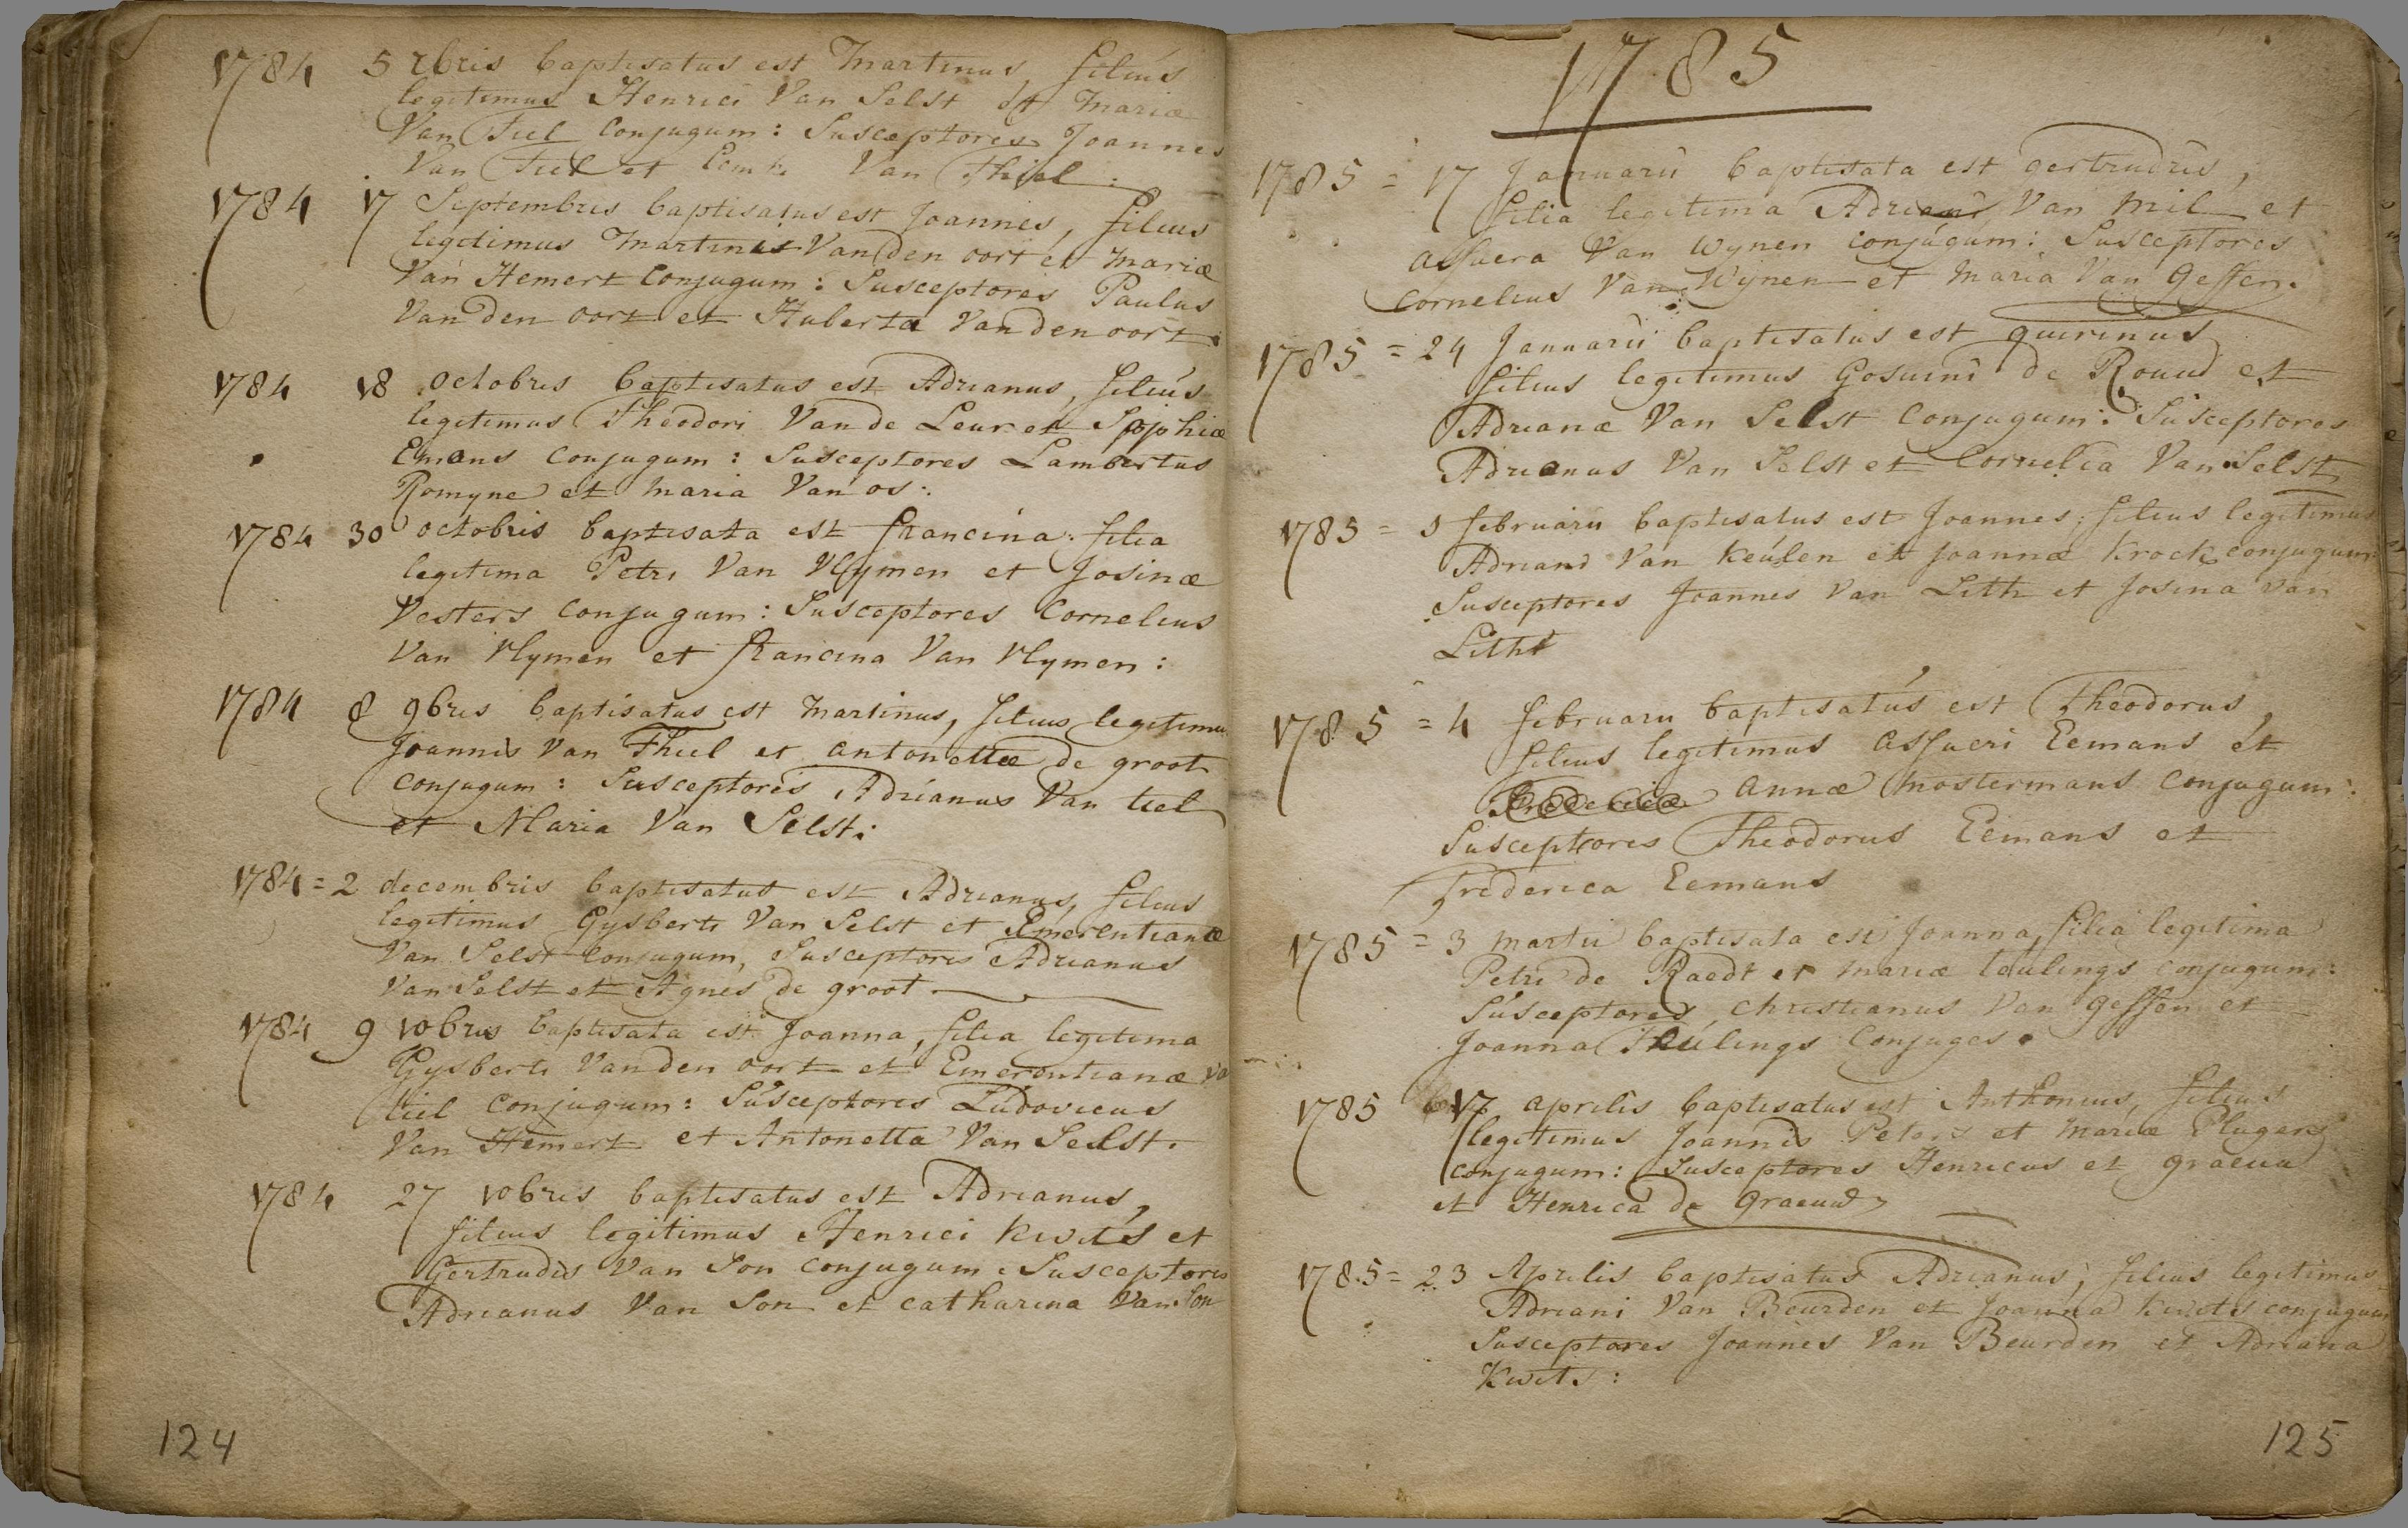 1784 5 7bris baptisatus est Martinus, filius
legitimus Henrici Van Selst et Mariæ
Van Tiel Conjugum: Susceptores Joannes
Van Tiel et Van Thiel:
1784 17 Septembris baptisatus est Joannes, filius
legitimus Martini Van den oort et Mariæ
Van Hemert Conjugum: Susceptores Paulus
Van den oort et Huberta Van den oort.
1784 18 octobris baptisatus est Adrianus, filius
legitimus Theodori Van de Leur et Sophiæ
Emans conjugum: Susceptores Lambertus
Romyne et Maria Van os:
1784 30 octobris baptisata est francina: filia
legitima Petri Van Vlymen et Josinæ
Vesters conjugum: Susceptores Cornelius
Van Vlymen et francina Van Vlymen:
1784 8 9bris baptisatus est Martinus, filius legitimus
Joannis Van Thiel et antonettæ de groot
conjugum: Susceptores Adrianus Van tiel
et Maria Van Selst:
1784 = 2 decembris baptisatus est Adrianus, filius
legitimus Gysberti Van Selst et Emerentianæ
Van Selst conjugum, Susceptores Adrianus
Van Selst et Agnes de groot.
1784 9 10bris baptisata est Joanna, filia legitima
Gysberti Van den oort et Emerentianæ va
tiel conjugum: Susceptores Ludovicus
Van Hemert et Antonetta Van Selst.
1784 27 10bris baptisatus est Adrianus,
filius legitimus Henrici Kwits et
Gertrudis Van Son conjugum: Susceptores
Adrianus Van Son et catharina Van Son
124
1785
1785 = 17 Januarii baptisata est gertrudis,
filia legitima Adriani Van Mil et
assuera Van Wynen conjugum: Susceptores
Cornelius Van Wynen et Maria Van Geffen.
1785 = 24 Januarii baptisatus est quirinus
filius legitimus Gosuini de Rouw et
Adrianæ Van Selst conjugum: Susceptores
Adrianus Van Selst et Cornelia Van Selst
1785 = februarii baptisatus est Joannes, filius legitimus
Adriani Van Keulen et Joannæ Krock conjugum
Susceptores Joannes Van Lith et Josina Van
Litht
1785 = 4 februarii baptisatus est Theodorus,
filius legitimus assueri Eemans et
annæ Mostermans conjugum:
Susceptores Theodorus Eemans et
frederica Eemans
1785 = 3 Martii baptisata est Joanna, filia legitima
Petri de Raedt et Mariæ teulings conjugum:
Susceptores, Christianus Van geffen et
Joanna Teulings Conjuges.
1785 17 aprilis baptisatus est Anthonius, filius
legitimus Joannis Peters et Mariæ Plugers
conjugum: Susceptores Henricus et graeuw
et Henrica de graeuw
1785 = 23 Aprilis baptisatus Adrianus; filius legitimus
Adriani Van Beurden et Joanna Kwits conjugum
Susceptores Joannes Van Beurden et Adriana
Kwits:
125